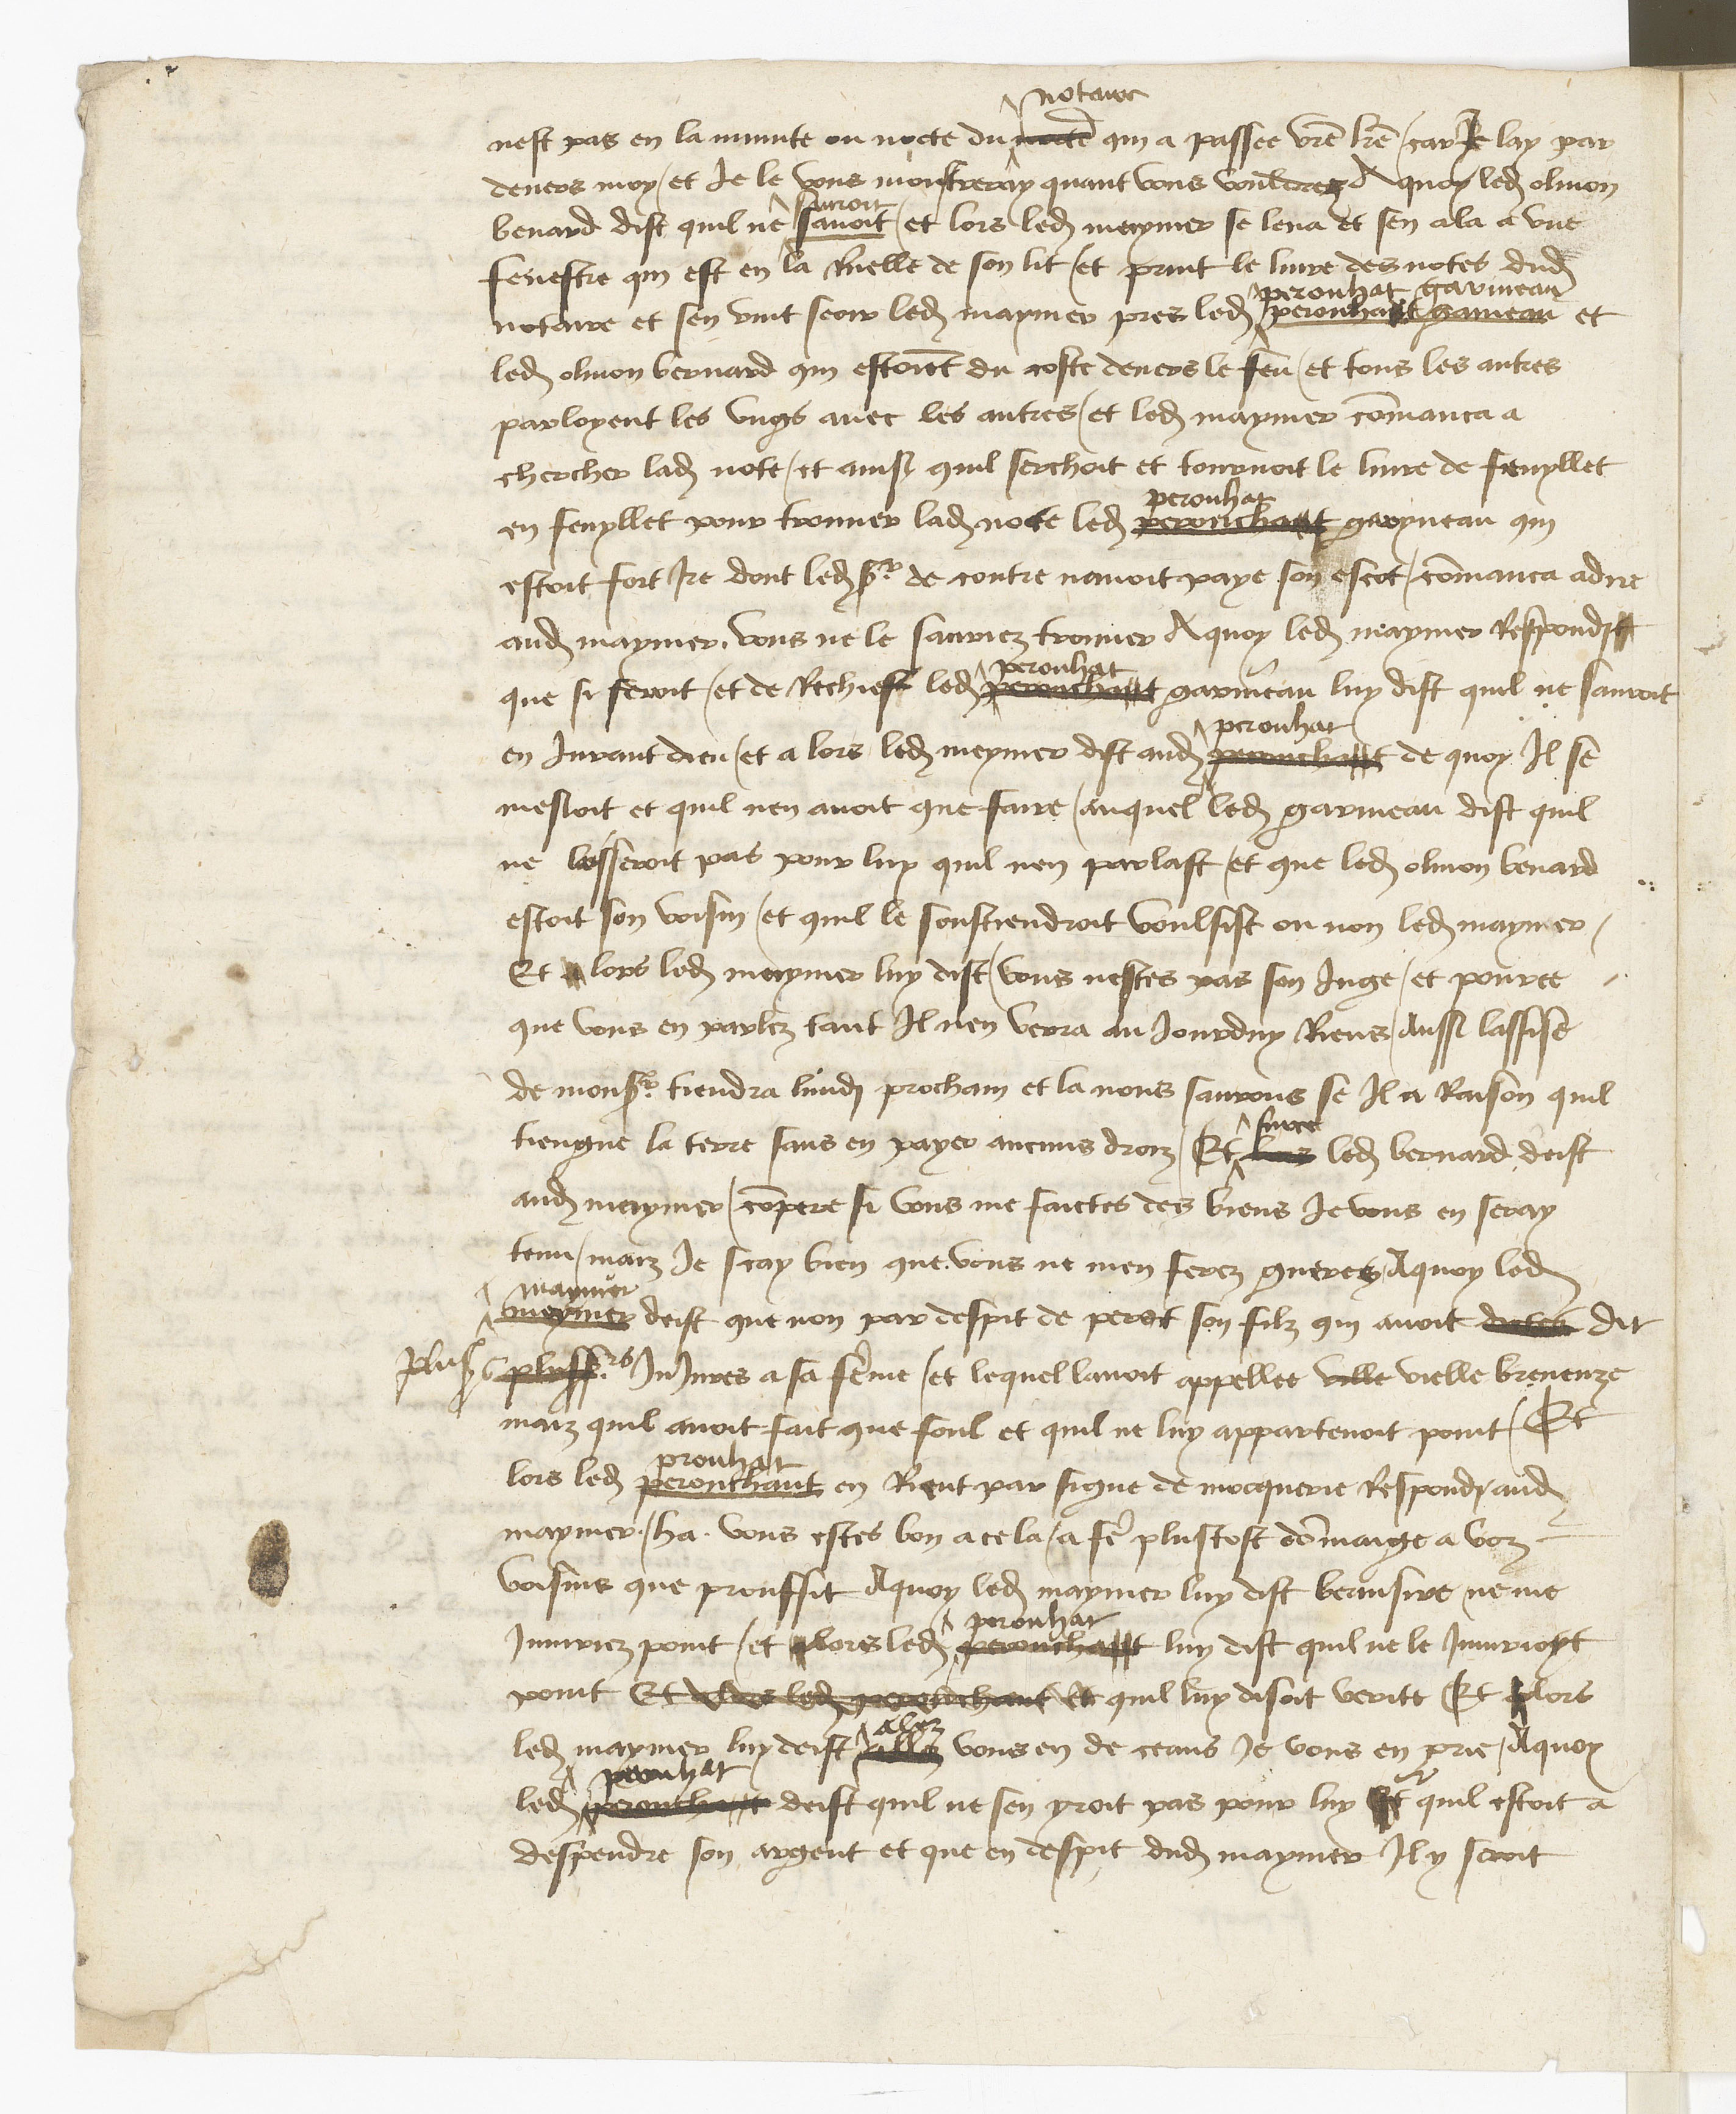 notaire
nest pas en la minute ou nocte du note qui a passee vre lre / car Je lay par
devers moy / et Je le vous monstreray quant vous vouldrez A quoy led olivon
sauroit
benard dist quil ne savoit / et lors led meymer se leva et sen ala a une
fenestre qui est en la Ruelle de son lit / et print le livre des notes dud
peronhat garineau
notaire et sen vint seoir led maymer pres led peronhart garineau et
led olivon bernard qui estoient du coste devers le feu / et tous les autres
parloyent les ungs avec les autres / et led maymer comanca a
chercher lad note / et ainsi quil serchoit et tournoit le livre de feuyllet
peronhat
en feuyllet pour trouver lad nocte led peronchant garyneau qui
estoit fort Ire dont led sr de contre navoit paye son escot / comanca a dire
aud maymer. vous ne le sauriez trouver A quoy led maymer Respondit
peronhat
que si feroit / et de Rechief led peronchant garineau luy dist quil ne sauroit
peronhat
en Jurant dieu / et a lors led meymer dist aud peronchant de quoy Il se
mesloit et quil nen avoit que faire / auquel led garineau dist quil
ne lesseroit pas pour luy quil nen parlast / et que led olivon benard
estoit son voisin / et quil le soustiendroit voulsist ou non led maymer /
Et a lors led meymer luy dist / vous nestes pas son Juge / et pource
que vous en parlez tant Il nen verra au Jourduy Riens / Aussi lassise
de monsr tiendra lundi prochain et la nous saurons se Il a Raison quil
surce
tiengne la terre sans en payer aucuns droiz / Et lors led bernard deist
aud meymer / compere si vous me faictes des biens Je vous en seray
tenu / maiz Je scay bien que vous ne men ferez gueres / A quoy led
maymer
meymer deist que non par despit de perot son filz qui avoit dictes dit
plus plussrs InJures a sa feme / et lequel lavoit appellee ville vielle breneuze
maiz quil avoit fait que foul et quil ne luy appartenoit point / Et
pronhat
lors led peronchant en Rient par signe de mocquerie Respondi aud
maymer / ha. vous estes bon a cela / a fe plustost domaige a voz
voisins que prouffit A quoy led maymer luy dist beausire ne me
peronhat
Injuriez point / et alors led peronchant luy dist quil ne le Injurioyt
point Et alors led peronchant et quil luy disoit verite Et alors
alez
led maymer luy deist allez vous en de ceans Je vous en prie / A quoy
peronhat
led peronchant deist quil ne sen yroit pas pour luy Et quil estoit a
despendre son argent et que en despit dud maymer Il y seroit